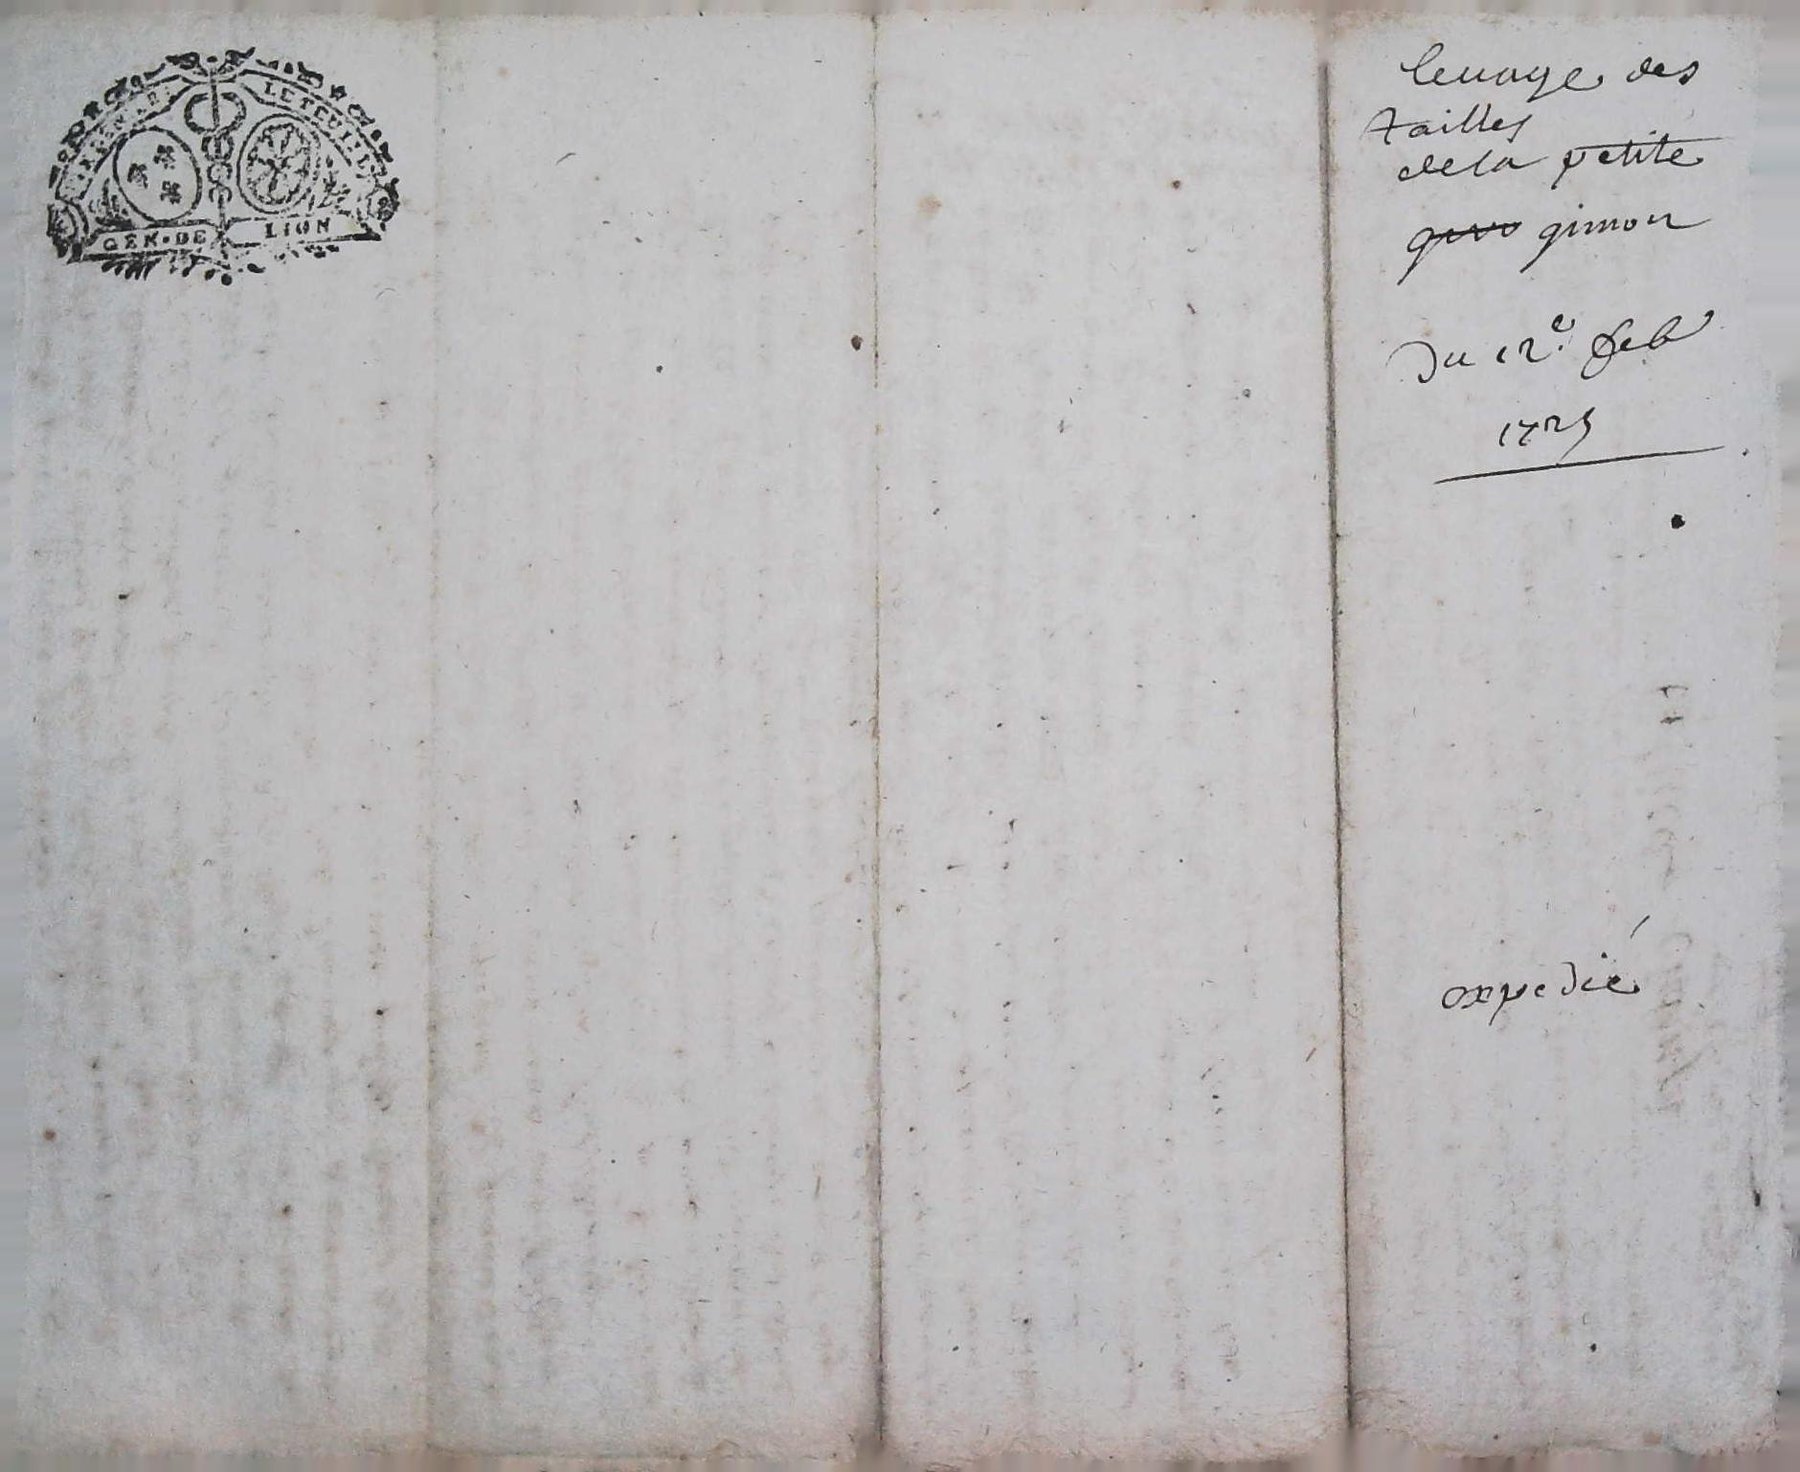 GEN·DE LION
levage des
tailles
de la petite
gimon
Du 12e feb
1725
expedié